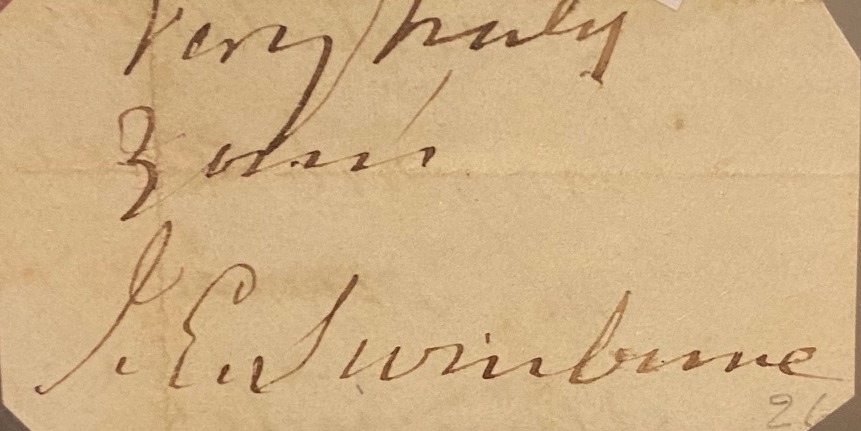 Very truly
yours
J. E. Swinburne